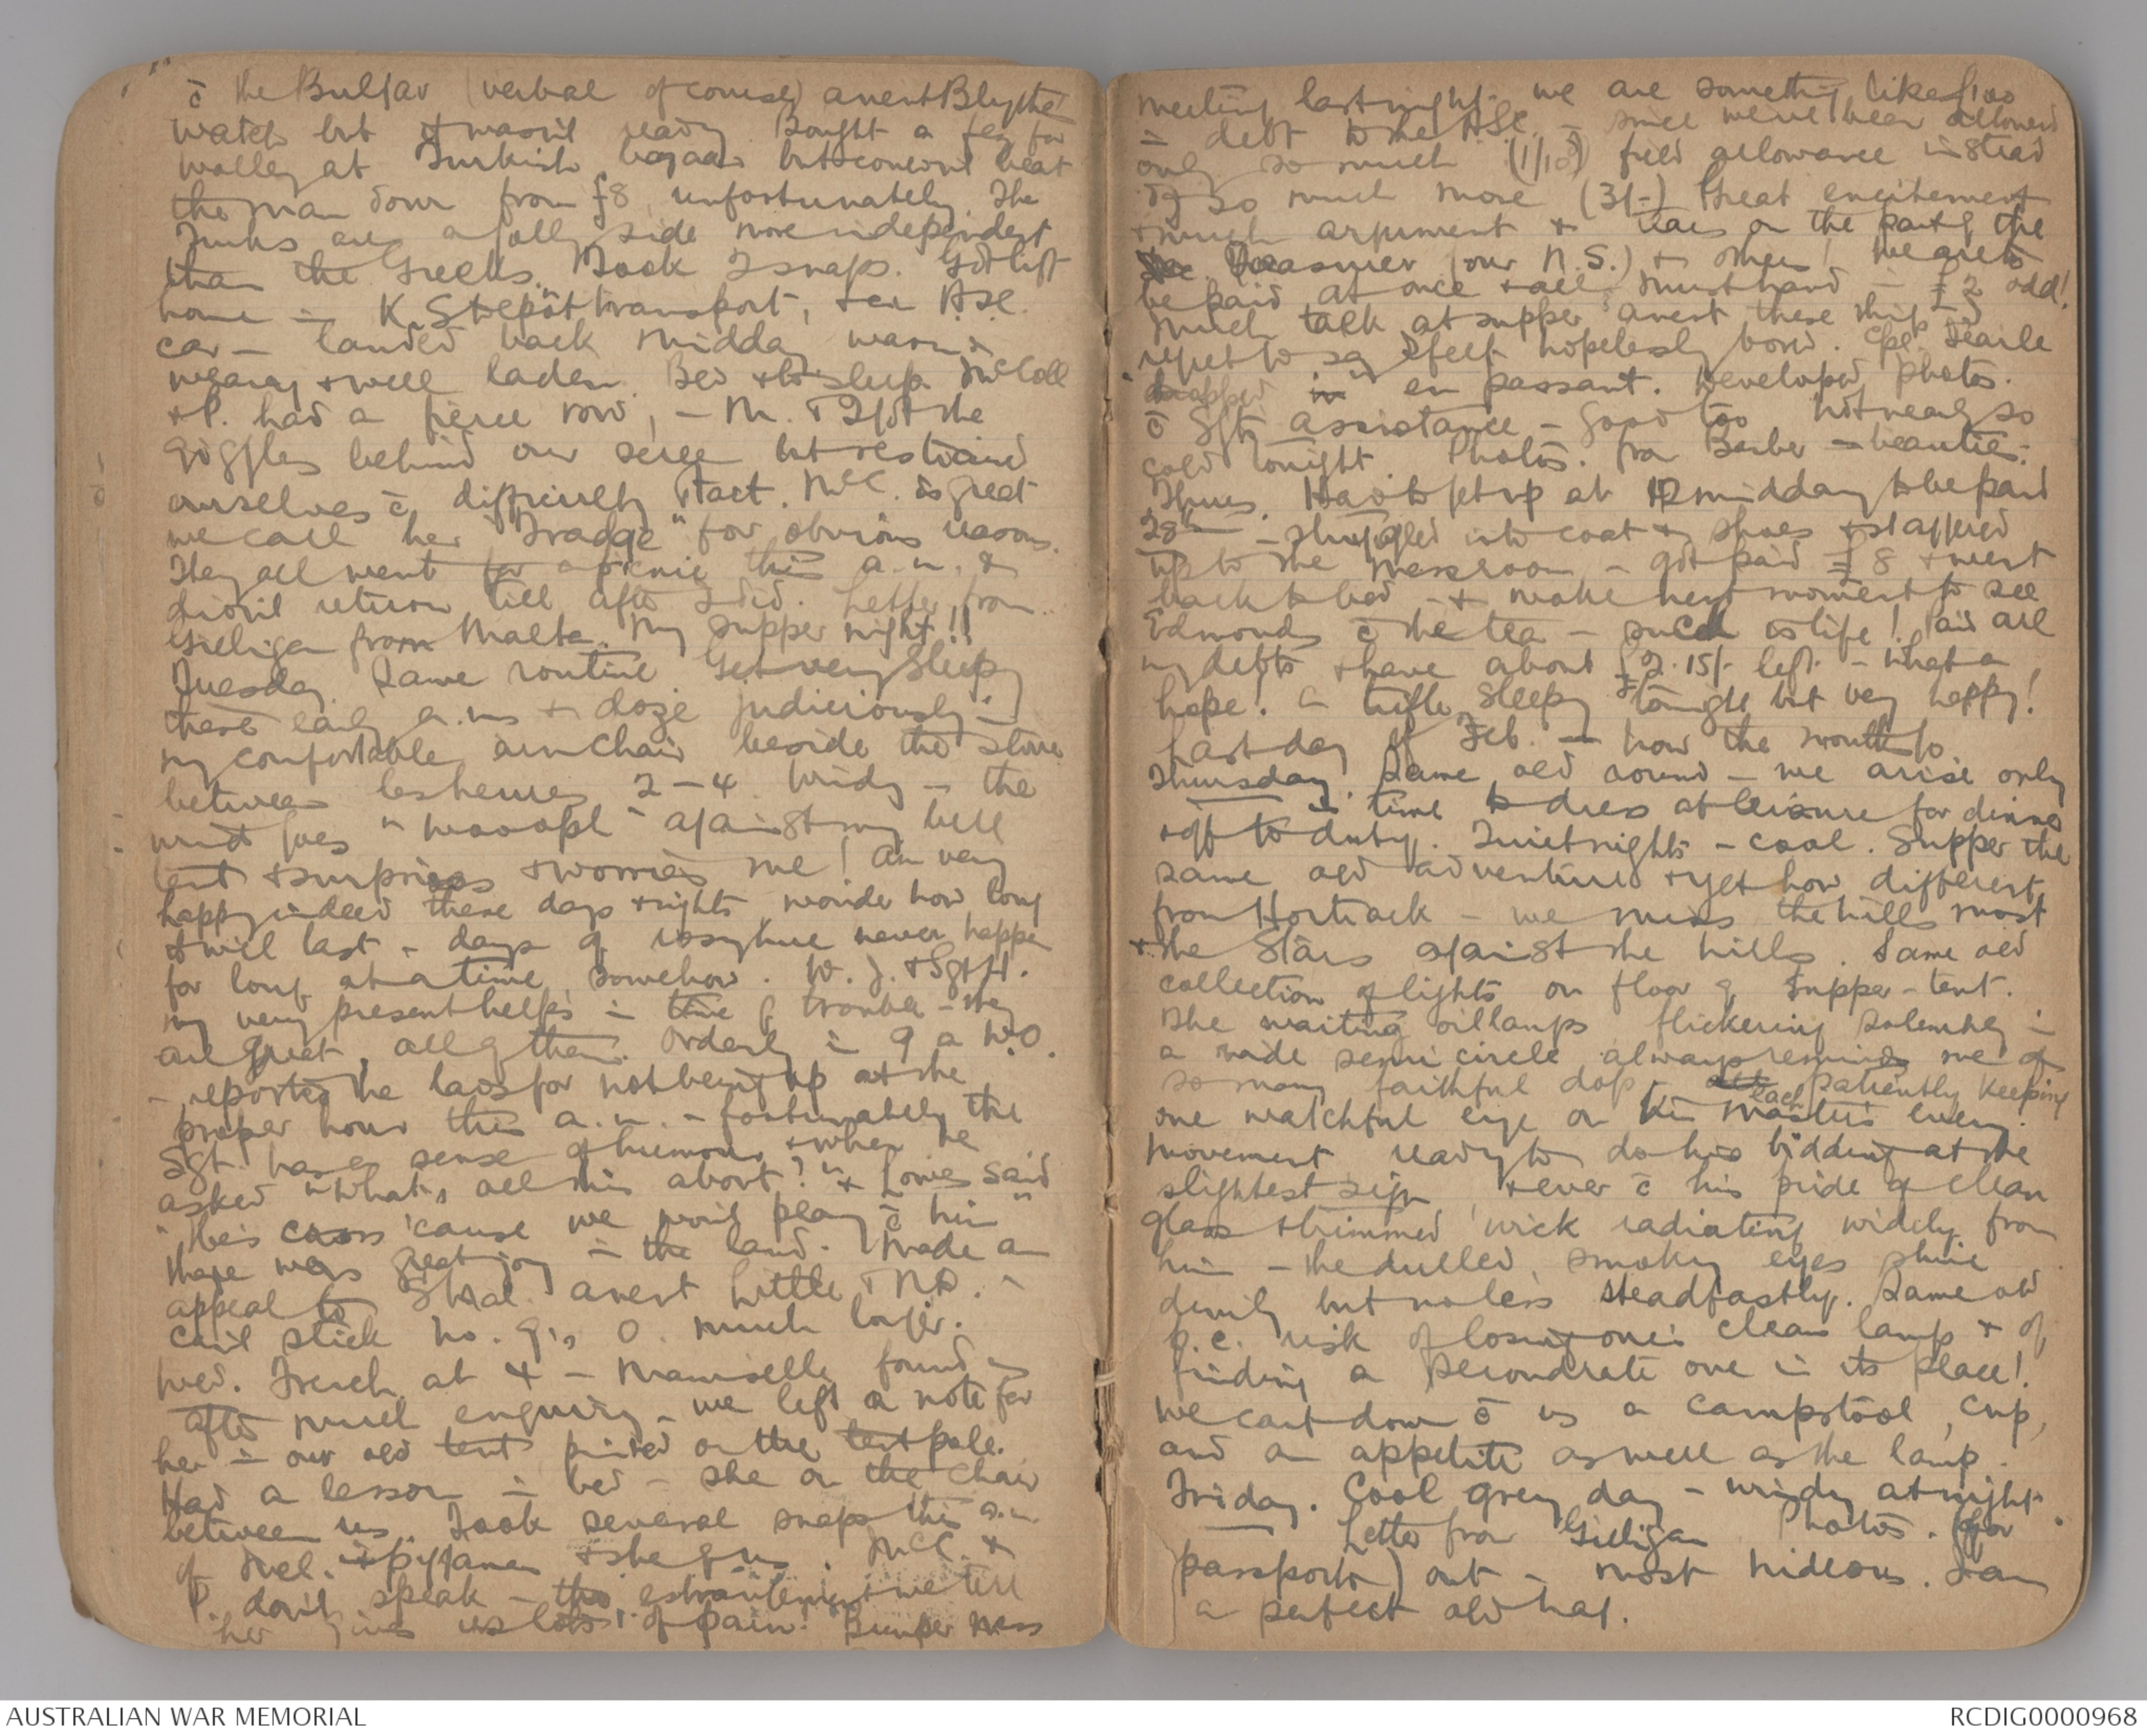 c̄ the Bulgar (verbal of course) anent Blyths
watch but it wasn't ready. Bought a fez for
Wolley at Turkish bazaar but couldn't beat
the man down from £8 unfortunately. The
Turks are a jolly side more independent
than the Greeks. Took 2 snaps. Got lift
home in K. Stepôt transport, & an ASC.
car – landed back midday warm &
weary & well laden. Bed & to sleep. McColl
& P. had a fierce row, – M. & I got the
giggles behind our but restrained
ourselves c̄ difficulty & tact. McC. is great
we call her "Tradge" for obvious reasons.
They all went for a picnic this a.m. &
didn't return till after I did. Letter from
Gilligan from Malta. My supper night!!
Tuesday. Same routine Get very sleepy
these early a.ms & doze judiciously in
my comfortable armchair beside the stove
between the hours 2–4. Windy – the
wind goes "woooph" against my bell
tent & surprises & worries me! Am very
happy indeed these days & nights wonder how long
it will last – days of rosy hue never happen
for long at a time, somehow. W. J. & Sgt H.
my very present helps in time of trouble – they
are great, all of them. Orderly in 9 a W.O.
– reported the lads for not being up at the
proper hour this a.m. – fortunately the
Sgt. has a sense of humour & when he
asked "What's all this about?" & Lowe said
"He's cross 'cause we won't play c̄ him"
there was great joy in the land. Made an
appeal to anent Little & N.D. –
can't stick no. 9's O. much longer.
Wed. French at 4 – Mamselle found us
after much enquiry – we left a note for
her in our old tent pinned on the tent pole.
Had a lesson in bed – she on the chair
between us. Took several snaps this a.m.
of Mel. in pyjamas & she of us. McC. &
P. don't speak – the estrangement we tell
her gives us lots of pain. Bumper mess
meeting last night. We are something like £100
in debt to the ASC. – since we've been allowed
only so much (1/10) field allowance instead
of so much more (3/-) Great excitement
& much argument & tears on the part of the
Treasurer (our N.S.) & others! We are to
be paid at once & all must hand in £2 odd!
Much talk at supper anent these things I
regret to say I feel hopelessly bored. Cpl. Searle
dropped in en passant. Developed photos.
c̄ Sgts assistance – good too. Not nearly so
cold tonight. Photos. from Barber – beauties.
Thurs. Had to get up at 12 midday to be paid
28th – struggled into coat & shoes & staggered
up to the Messroom – got paid £8 & went
back to bed – & woke next moment to see
Edmonds c̄ the tea – such is life! Paid all
my debts & have about £2.15/- left. – what a
hope! A trifle sleepy tonight but very happy!
Last day of Feb. – how the months go
Thursday. Same old round – we arise only
in time to dress at leisure for dinner
& off to duty. Quiet nights – cool. Supper the
same old adventure & yet how different
from Hortiack – we miss the hills most
& the stars against the hills. Same old
collection of lights on floor of supper-tent.
The waiting oil lamps flickering solemnly in
a wide semi circle always reminds me of
so many faithful dogs – each patiently keeping
one watchful eye on his master's every
movement ready to do his bidding at the
slightest sign & ever c̄ his pride of clean
glass & trimmed wick radiating widely from
him – the dulled, smoky eyes shine
dimly but no less steadfastly. Same old
p.c. risk of losing one's clean lamp & of
finding a secondrate one in its place!
We cart down c̄ us a campstool, cup,
and an appetite as well as the lamp.
Friday. Cool grey day – windy at night.
Letter from Gilligan. Photos. (for
passports) out – most hideous. I am
a perfect old hag.
AUSTRALIAN WAR MEMORIAL
RCDIG0000968